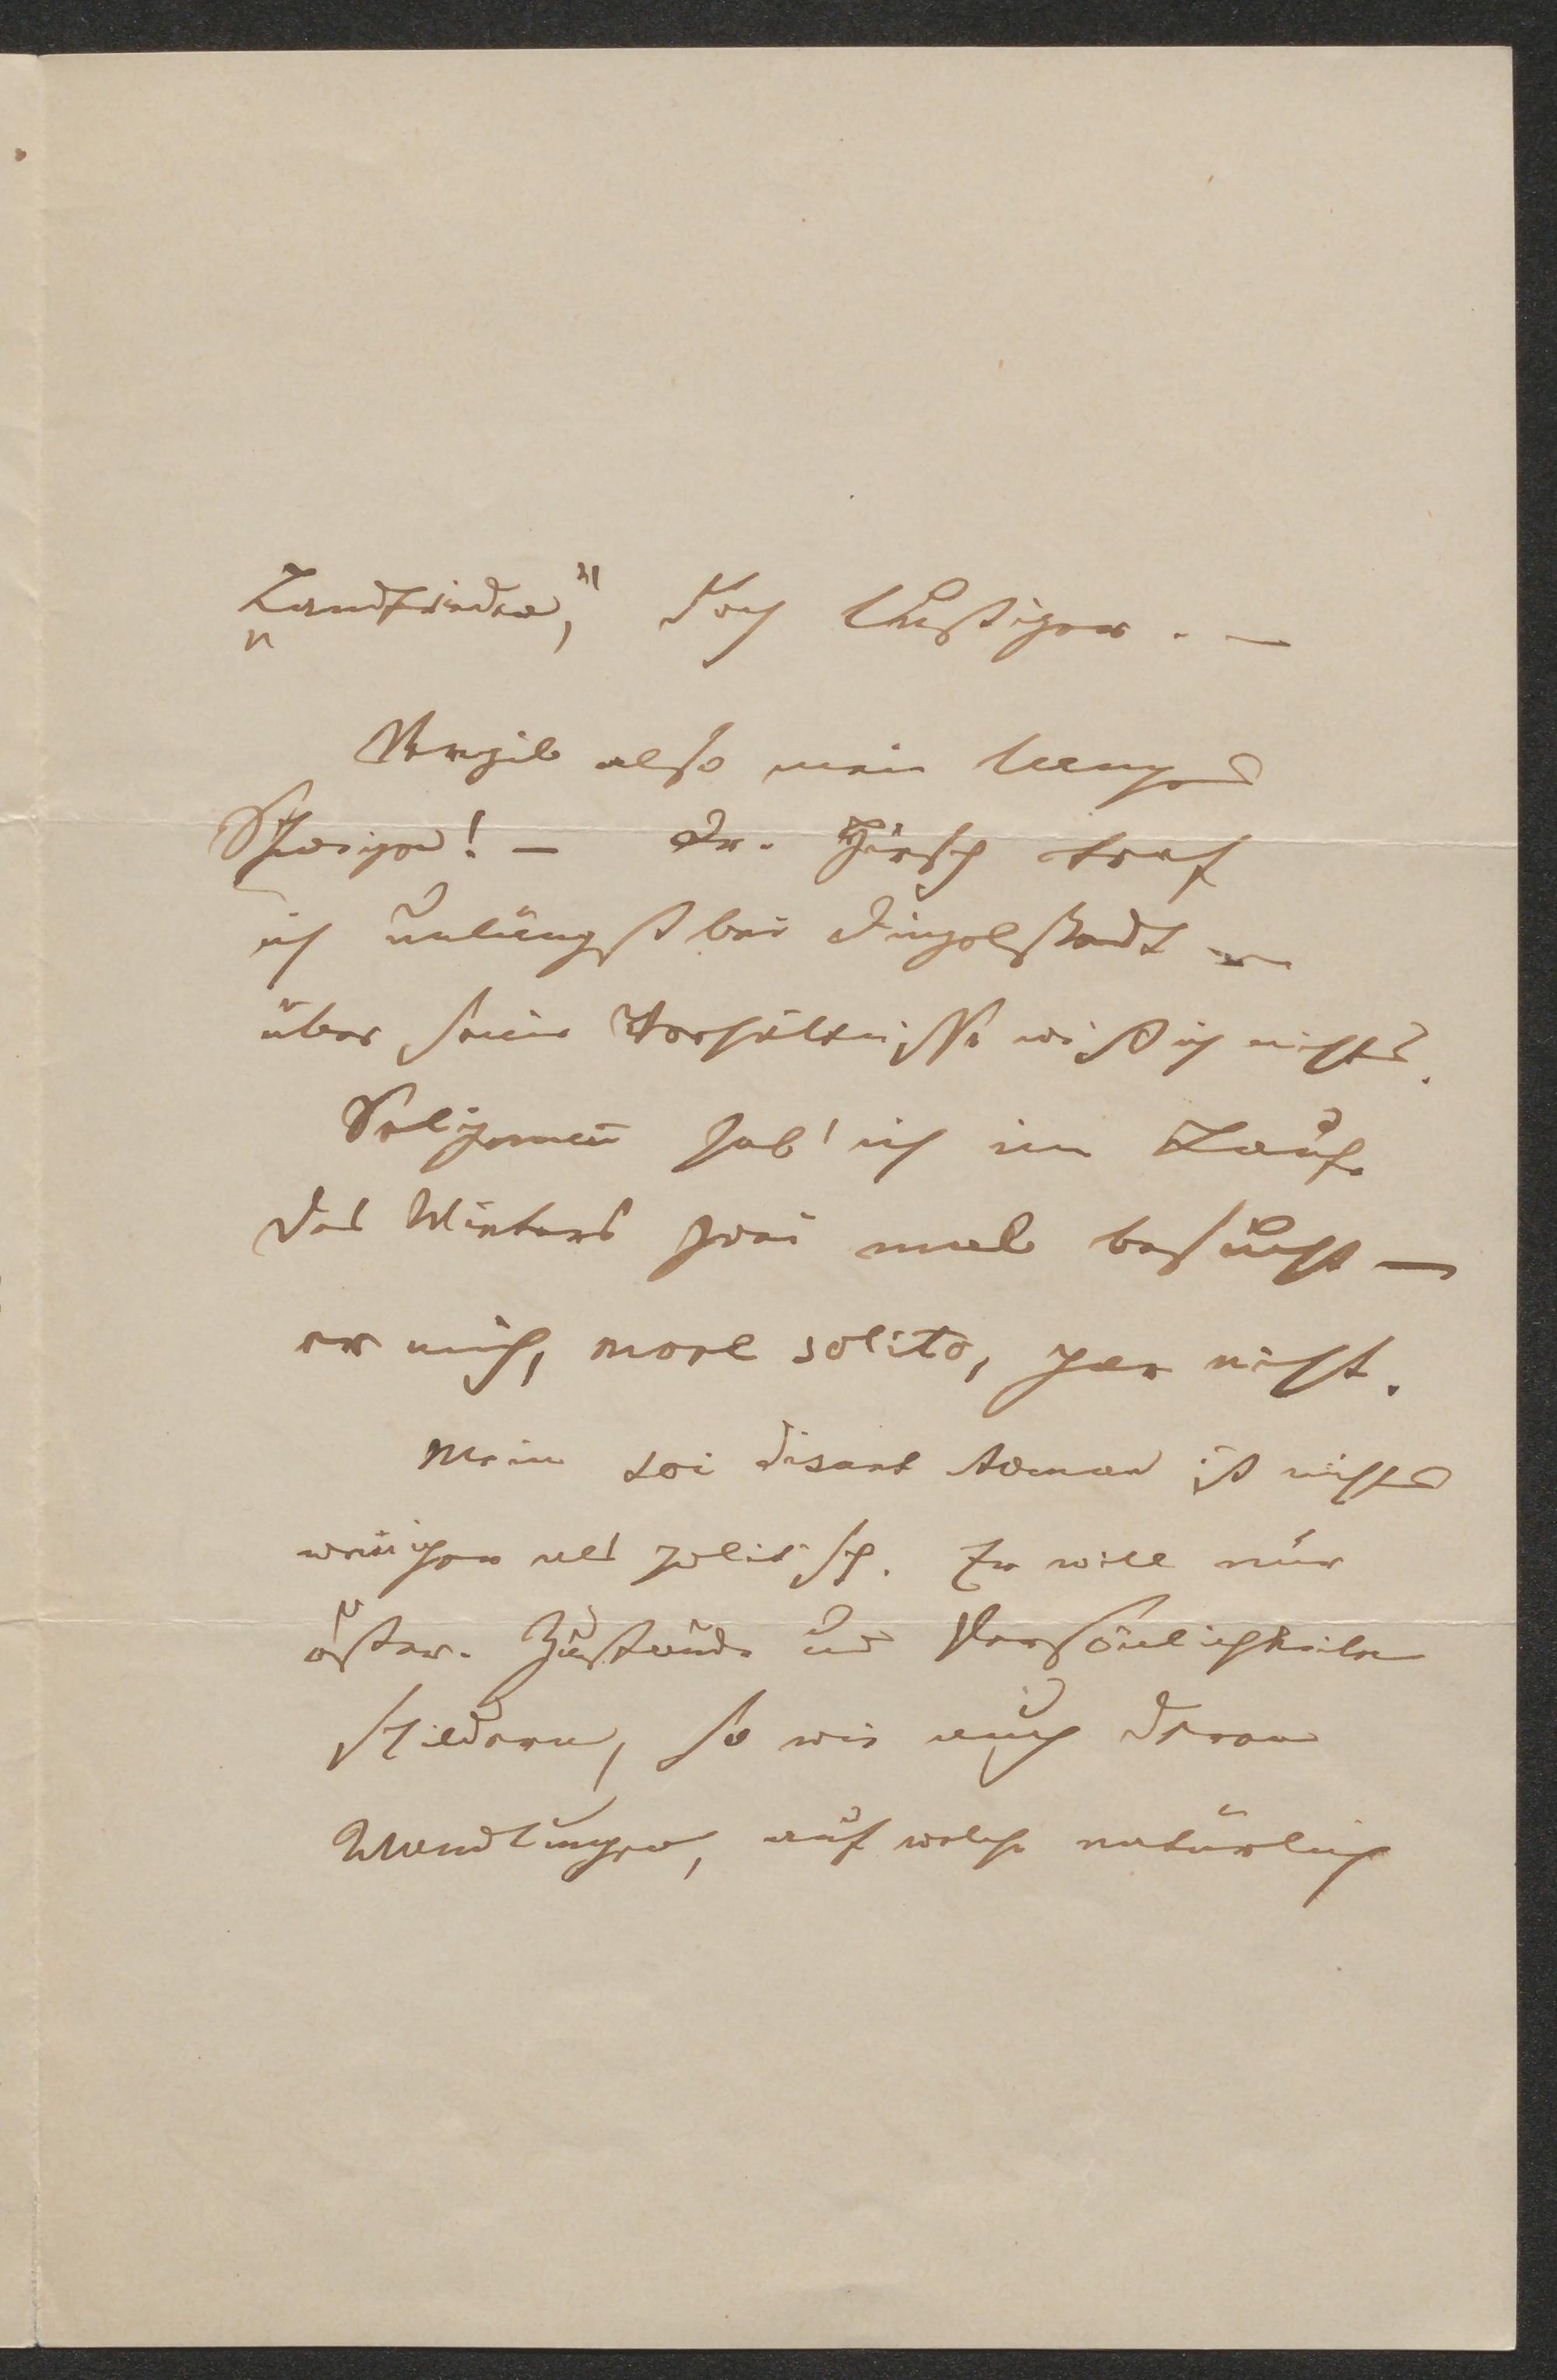 „Landfrieden," doch lustiger. —
Verzeih also mein langes
Schweigen! — Dr. Hirsch traf
ich unlängst bei Dingelstedt —
über seine Verhältnisse wißt ich nichts.
Seligmann hab' ich im Laufe
des Winters zwei mal besucht —
er mich, more solito, gar nicht.
Mein soi disant Roman ist nichts
weniger als politisch. Er will nur
öster. Zustände und Persönlichkeiten
schildern, so wie auch deren
Wandlungen, auf welche natürlich